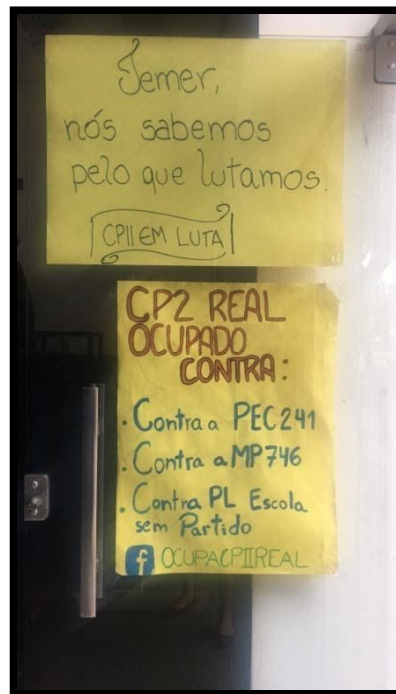 Temer,
nós sabemos
pelo que lutamos.
CPII EM LUTA
CP2 REAL
OCUPADO
CONTRA:
· Contra a PEC241
· Contra a MP746
· Contra PL Escola
sem Partido
f OCUPACPIIREAL